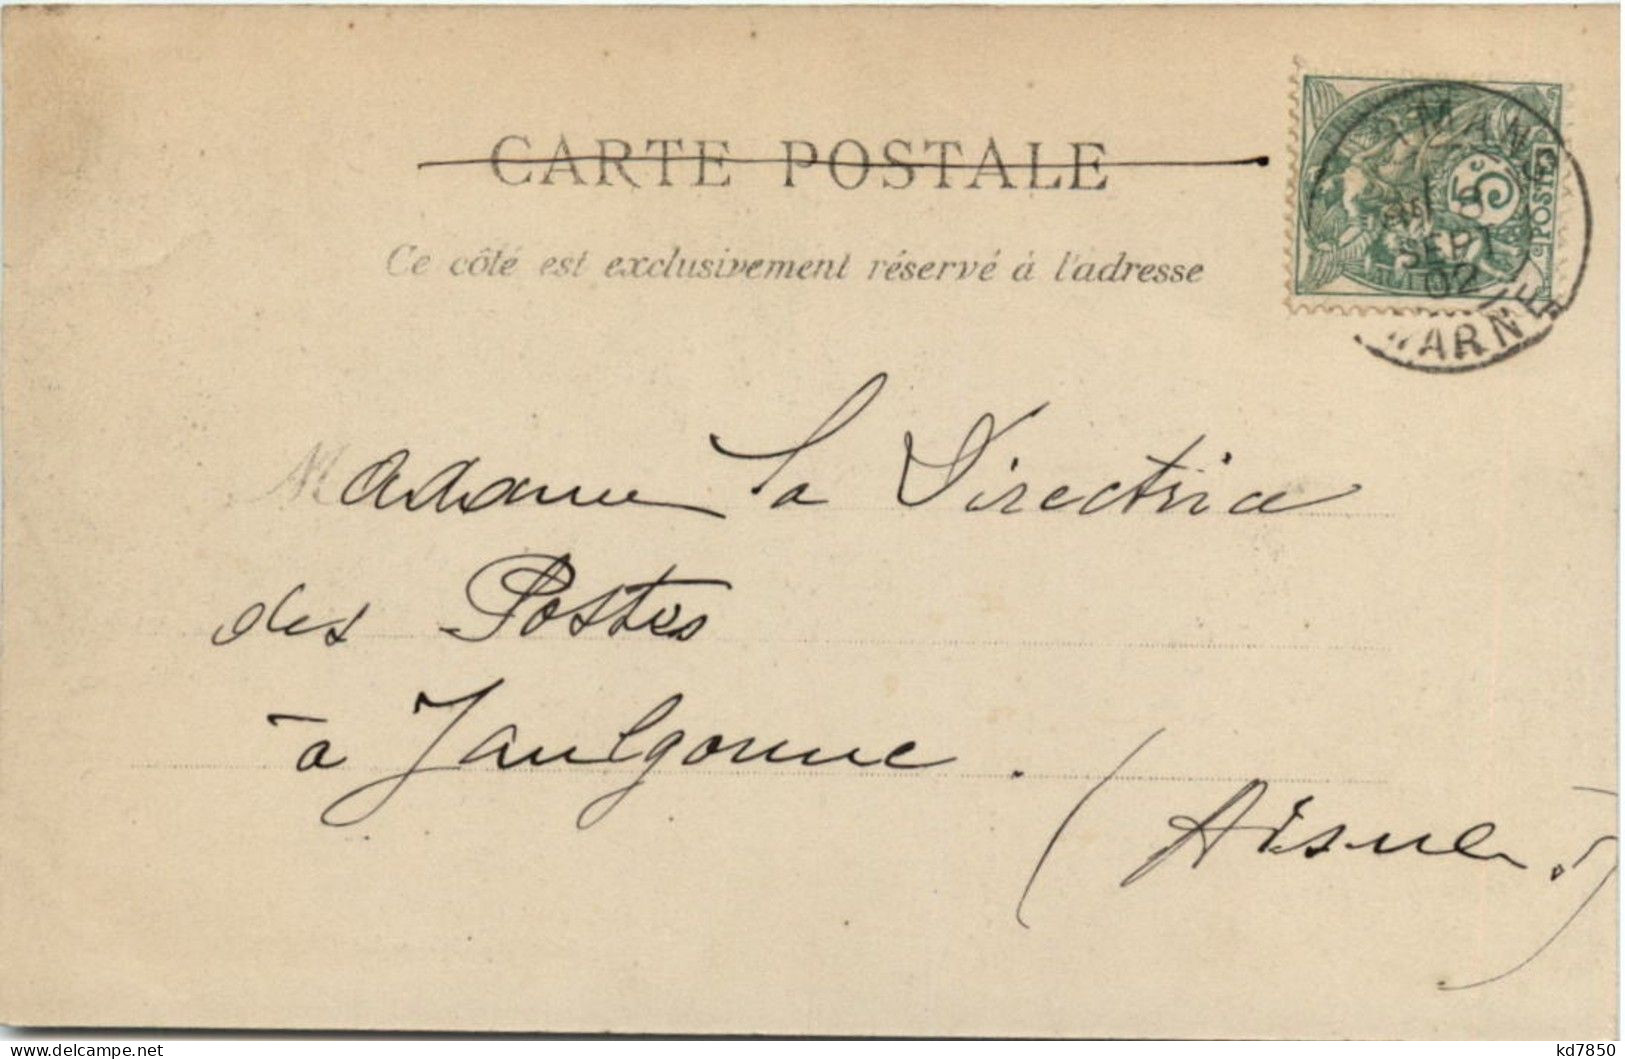 CARTE POSTALE
Ce côté est exclusivement réservé à l'adresse
5
POSTES
SEPT
02
MARNE
Madame la Directrice
des Postes
à Jaulgonne.
(Aisne.)
kd7850